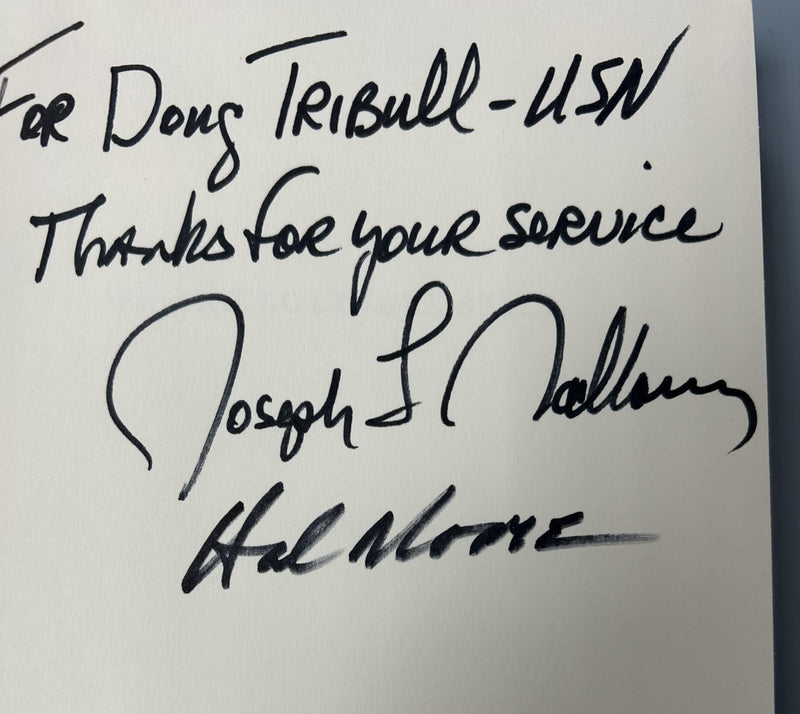 For Doug Tribull - USN
Thanks for your service
Joseph L Galloway
Hal Moore